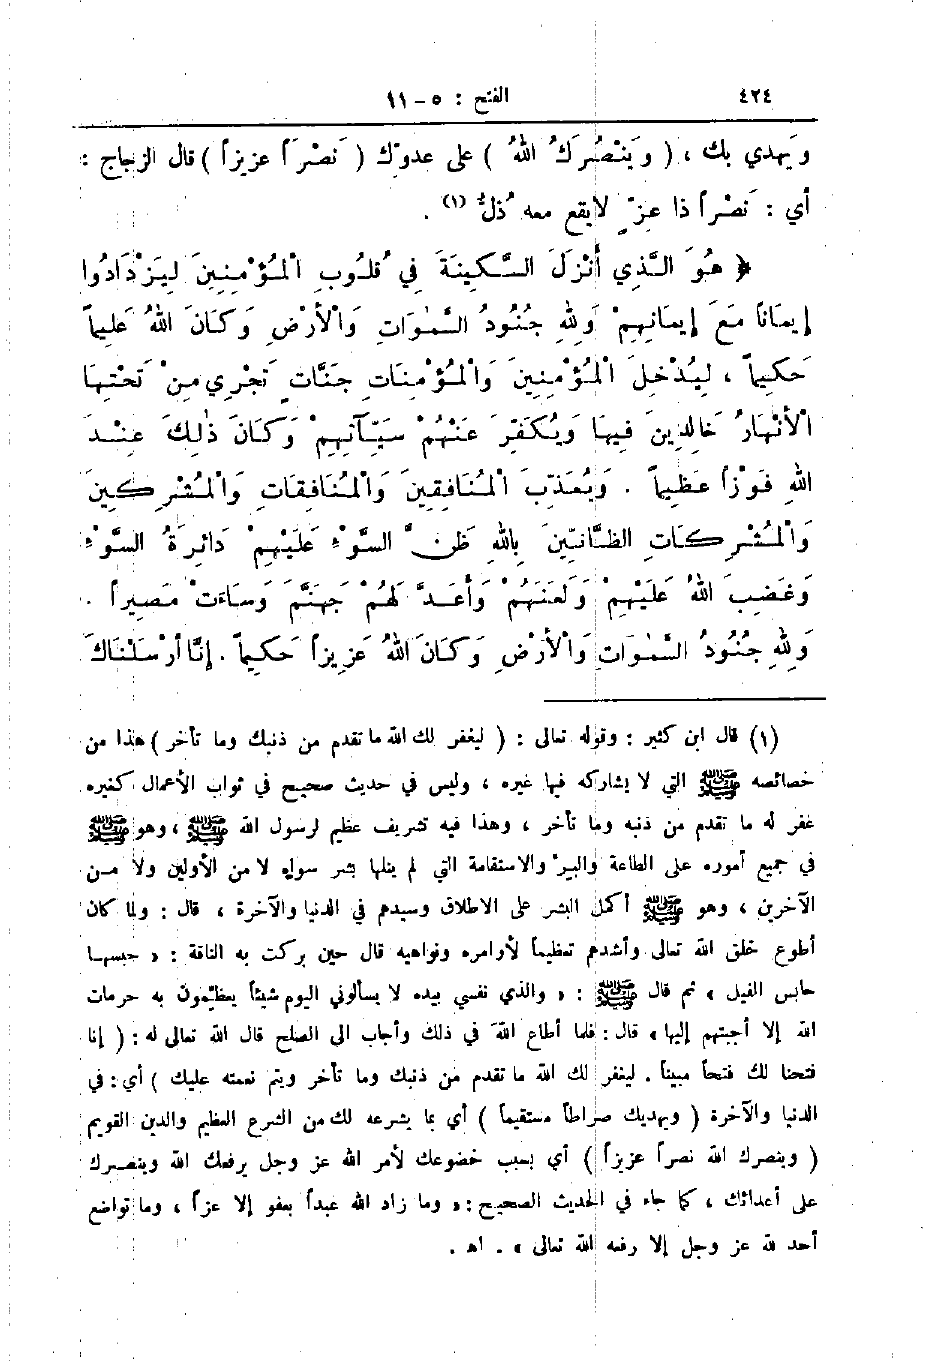 ٤٢٤ الفتح : ٥ - ١١
وَيَهدي بك ، ( وَيَنْصُرَكَ اللهُ ) على عدوّك ( نَصْراً عزيزاً ) قال الزجاج :
أي : نَصْراً ذا عِزٍّ لا يقع معه ذُلّ (١) .
﴿ هُوَ الَّذِي أَنْزَلَ السَّكِينَةَ فِي قُلُوبِ الْمُؤْمِنِينَ لِيَزْدَادُوا
إِيمَاناً مَعَ إِيمَانِهِمْ وَلِلهِ جُنُودُ السَّمٰوَاتِ وَالْأَرْضِ وَكَانَ اللهُ عَلِيماً
حَكِيماً ، لِيُدْخِلَ الْمُؤْمِنِينَ وَالْمُؤْمِنَاتِ جَنَّاتٍ تَجْرِي مِنْ تَحْتِهَا
الْأَنْهَارُ خَالِدِينَ فِيهَا وَيُكَفِّرَ عَنْهُمْ سَيِّآتِهِمْ وَكَانَ ذٰلِكَ عِنْدَ
اللهِ فَوْزاً عَظِيماً . وَيُعَذِّبَ الْمُنَافِقِينَ وَالْمُنَافِقَاتِ وَالْمُشْرِكِينَ
وَالْمُشْرِكَاتِ الظَّانِّينَ بِاللهِ ظَنَّ السَّوْءِ عَلَيْهِمْ دَائِرَةُ السَّوْءِ
وَغَضِبَ اللهُ عَلَيْهِمْ وَلَعَنَهُمْ وَأَعَدَّ لَهُمْ جَهَنَّمَ وَسَاءَتْ مَصِيراً .
وَلِلهِ جُنُودُ السَّمٰوَاتِ وَالْأَرْضِ وَكَانَ اللهُ عَزِيزاً حَكِيماً . إِنَّا أَرْسَلْنَاكَ
(١) قال ابن كثير : وقوله تعالى : ( ليغفر لك الله ما تقدم من ذنبك وما تأخر ) هذا من
خصائصه ﷺ التي لا يشاركه فيها غيره ، وليس في حديث صحيح في ثواب الأعمال كغيره
غفر له ما تقدم من ذنبه وما تأخر ، وهذا فيه تشريف عظيم لرسول الله ﷺ ، وهو ﷺ
في جميع أموره على الطاعة والبرّ والاستقامة التي لم ينلها بشر سواه لا من الأولين ولا من
الآخرين ، وهو ﷺ أكمل البشر على الاطلاق وسيدهم في الدنيا والآخرة ، قال : ولما كان
أطوع خلق الله تعالى وأشدهم تعظيماً لأوامره ونواهيه قال حين بركت به الناقة : « حبسها
حابس الفيل » ثم قال ﷺ : « والذي نفسي بيده لا يسألوني اليوم شيئاً يعظِّمون به حرمات
الله إلا أجبتهم إليها » قال : فلما أطاع اللهَ في ذلك وأجاب الى الصلح قال الله تعالى له : ( إنا
فتحنا لك فتحاً مبيناً . ليغفر لك الله ما تقدم من ذنبك وما تأخر ويتم نعمته عليك ) أي : في
الدنيا والآخرة ( ويهديك صراطاً مستقيماً ) أي بما يشرعه لك من الشرع العظيم والدين القويم
( وينصرك الله نصراً عزيزاً ) أي بسبب خضوعك لأمر الله عز وجل يرفعك الله وينصرك
على أعدائك ، كما جاء في الحديث الصحيح : « وما زاد الله عبداً بعفو إلا عزاً ، وما تواضع
أحد لله عز وجل إلا رفعه الله تعالى » . اهـ .